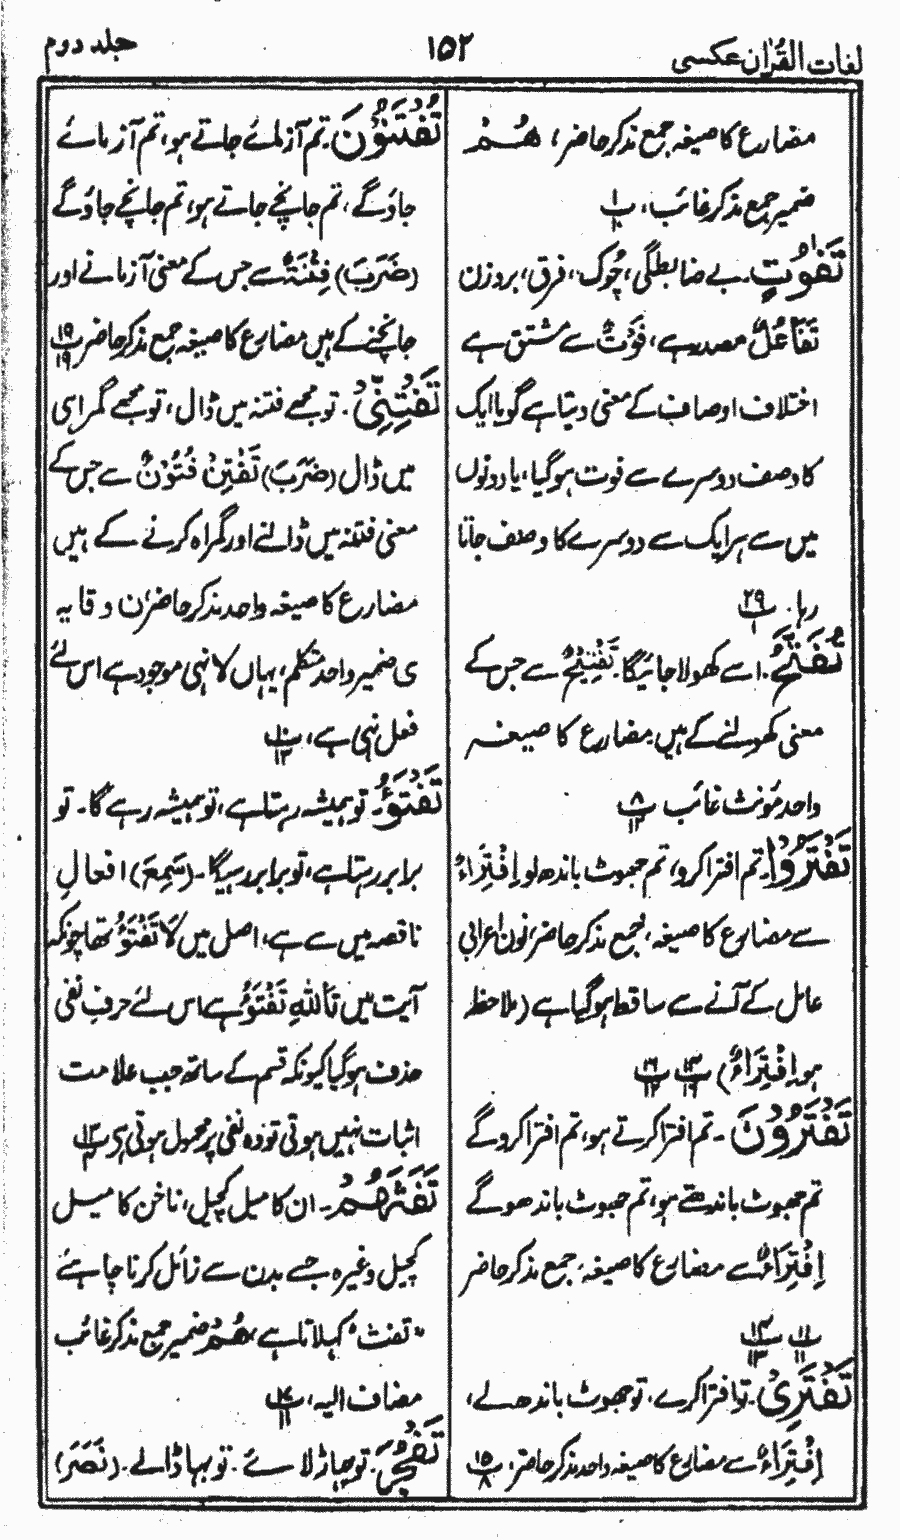 لغات القرآن عکسی
۱۵۲
جلد دوم
مضارع کا صیغہ جمع مذکر حاضر، هُمْ
ضمیر جمع مذکر غائب، پ
تَفٰوُتٍ۔ بے ضابطگی، چُوک، فرق، بروزن
تَفَاعُلٌ مصدر ہے، فَوْتٌ سے مشتق ہے
اختلاف اوصاف کے معنی دیتا ہے گویا ایک
کا وصف دوسرے سے فوت ہوگیا، یا دونوں
میں سے ہر ایک سے دوسرے کا وصف جاتا
رہا۔ ۲۹/۱
تُفَتَّحُ۔ اسے کھولا جائیگا۔ تَفْتِيْحٌ سے جس کے
معنی کھولنے کے ہیں۔ مضارع کا صیغہ
واحد مؤنث غائب ۸/۱۲
تَفْتَرُوْا۔ تم افترا کرو، تم جھوٹ باندھ لو اِفْتِرَاءٌ
سے مضارع کا صیغہ، جمع مذکر حاضر، نون اعرابی
عامل کے آنے سے ساقط ہوگیا ہے (ملاحظہ
ہو اِفْتِرَاءٌ) ۱۶/۱۲ ۱۳/۱۹
تَفْتَرُوْنَ۔ تم افترا کرتے ہو، تم افترا کروگے
تم جھوٹ باندھتے ہو، تم جھوٹ باندھوگے
اِفْتِرَاءٌ سے مضارع کا صیغہ، جمع مذکر حاضر
۱۱/۱۱ ۱۴/۱۳
تَفْتَرِیْ۔ تو افترا کرے، تو جھوٹ باندھ لے،
اِفْتِرَاءٌ سے مضارع کا صیغہ واحد مذکر حاضر، ۱۵/۸
تُفْتَنُوْنَ۔ تم آزمائے جاتے ہو، تم آزمائے
جاؤگے، تم جانچے جاتے ہو، تم جانچے جاؤگے
(ضَرَبَ) فِتْنَةٌ سے جس کے معنی آزمانے اور
جانچنے کے ہیں مضارع کا صیغہ جمع مذکر حاضر ۱۹/۱۹
تَفْتِنِّیْ۔ تو مجھے فتنہ میں ڈال، تو مجھے گمراہی
میں ڈال (ضَرَبَ) تَفْتِنْ فُتُوْنٌ سے جس کے
معنی فتنہ میں ڈالنے اور گمراہ کرنے کے ہیں
مضارع کا صیغہ واحد مذکر حاضر، ن وقایہ
ی ضمیر واحد متکلم، یہاں لا نہی موجود ہے اس لئے
فعل نہی ہے، ۱۰/۱۳
تَفْتَؤُ۔ تو ہمیشہ رہتا ہے، تو ہمیشہ رہے گا۔ تو
برابر رہتا ہے، تو برابر رہیگا۔ (سَمِعَ) افعالِ
ناقصہ میں سے ہے، اصل میں لَا تَفْتَؤُ تھا چونکہ
آیت میں تَاللّٰهِ تَفْتَؤُ ہے اس لئے حرفِ نفی
حذف ہوگیا کیونکہ قسم کے ساتھ جب علامت
اثبات نہیں ہوتی تو وہ نفی پر محمول ہوتی ہے ۱۳/۴
تَفَثَهُمْ۔ ان کا میل کچیل، ناخن کا میل
کچیل وغیرہ جسے بدن سے زائل کرنا چاہئے
"تفث" کہلاتا ہے، هُمْ ضمیر جمع مذکر غائب
مضاف الیہ، ۱۷/۱۱
تَفْجُرَ۔ تو پھاڑ لائے۔ تو بہا ڈالے۔ (نَصَرَ)